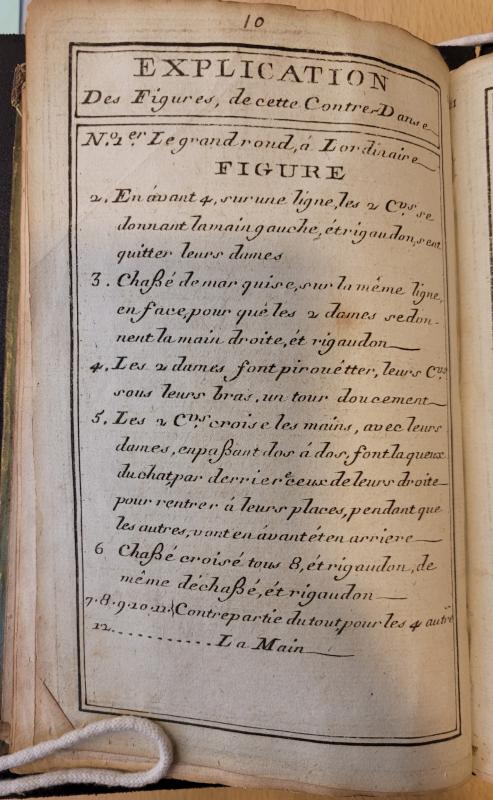 10
EXPLICATION
Des Figures, de cette Contre-Danse
N.o 1.er Le grand rond, á Lordinaire
FIGURE
2. En ávant 4, sur une ligne, les 2 C.vs se
donnant la main gauche, ét rigaudon, sent
quitter leurs dames
3. Chaßé de mar quise, sur la même ligne,
en face, pour què les 2 dames se don-
nent la main droite, ét rigaudon
4. Les 2 dames font pirouétter, leurs C.vs
sous leurs bras, un tour doucement
5. Les 2 C.vs croise les mains, avec leurs
dames, en paßant dos á dos, font la queux
du chat par derriere ceux de leurs droite
pour rentrer á leurs places, pendant que
les autres, vont en ávant ét en arriere
6 Chaßé croisé tous 8, ét rigaudon, de
même déchaßé, ét rigaudon
7.8.9.10.11. Contrepartie du tout, pour les 4 autre
12........... La Main